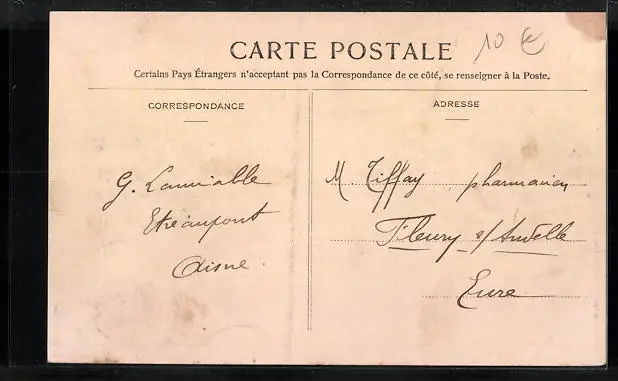 10 €
CARTE POSTALE
Certains Pays Étrangers n'acceptant pas la Correspondance de ce côté, se renseigner à la Poste.
CORRESPONDANCE
G. Lamiable
Etréaupont
Aisne.
ADRESSE
M. Tiffay pharmacien
Fleury s/ Andelle
Eure